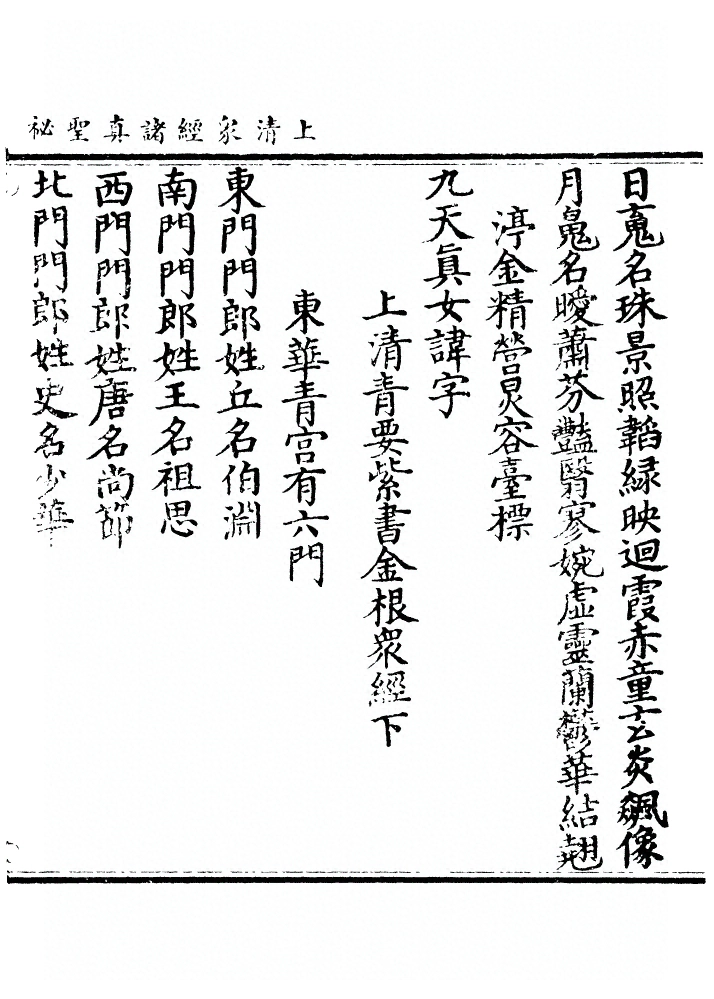 上清衆經諸真聖祕
日䰟名珠景照韜緑映迴霞赤童玄炎飆像
月䰟名曖蕭芬豔翳寥婉虛靈蘭鬱華結翹
渟金精瑩炅容臺標
九天眞女諱字
上清青要紫書金根衆經下
東華青宫有六門
東門門郎姓丘名伯淵
南門門郎姓王名祖思
西門門郎姓唐名尚節
北門門郎姓史名少華